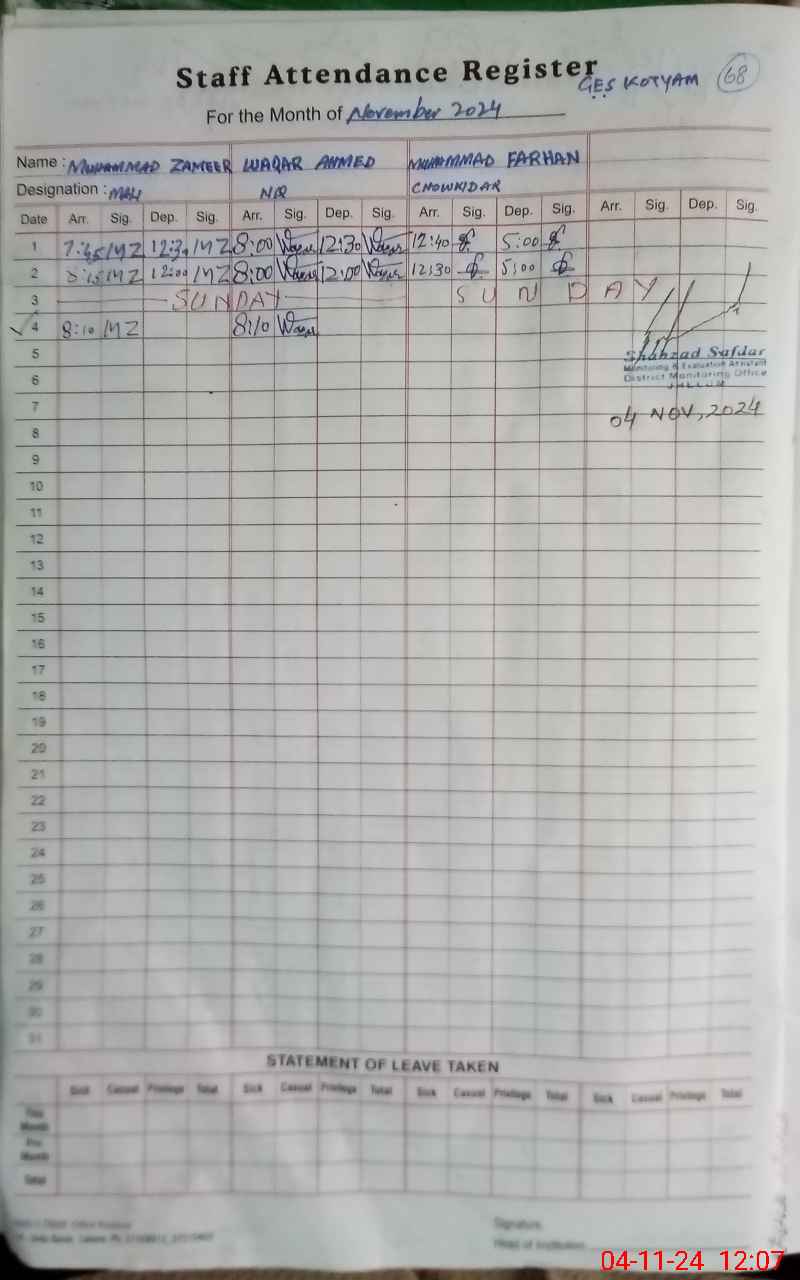 Staff Attendance Register
GES KOTYAM 68
For the Month of November 2024
Name : MUHAMMAD ZAMEER WAQAR AHMED MUHAMMAD FARHAN
Designation : MALI NQ CHOWKIDAR
Date Arr. Sig. Dep. Sig. Arr. Sig. Dep. Sig. Arr. Sig. Dep. Sig. Arr. Sig. Dep. Sig.
1 7:45 MZ 12:30 MZ 8:00 Waqar 12:30 Waqar 12:40 5:00
2 8:15 MZ 12:00 MZ 8:00 Waqar 12:00 Waqar 12:30 5:00
3 SUNDAY SUNDAY
4 8:10 MZ 8:10 Waqar
5
Shahzad Safdar
Monitoring & Evaluation Assistant
6
District Monitoring Office
JHELUM
7
04 NOV, 2024
8
9
10
11
12
13
14
15
16
17
18
19
20
21
22
23
24
25
26
27
28
29
30
31
STATEMENT OF LEAVE TAKEN
Sick Casual Privilege Total Sick Casual Privilege Total Sick Casual Privilege Total Sick Casual Privilege Total
This
Month
Pre
Month
Total
Signature
Head of Institution
04-11-24 12:07